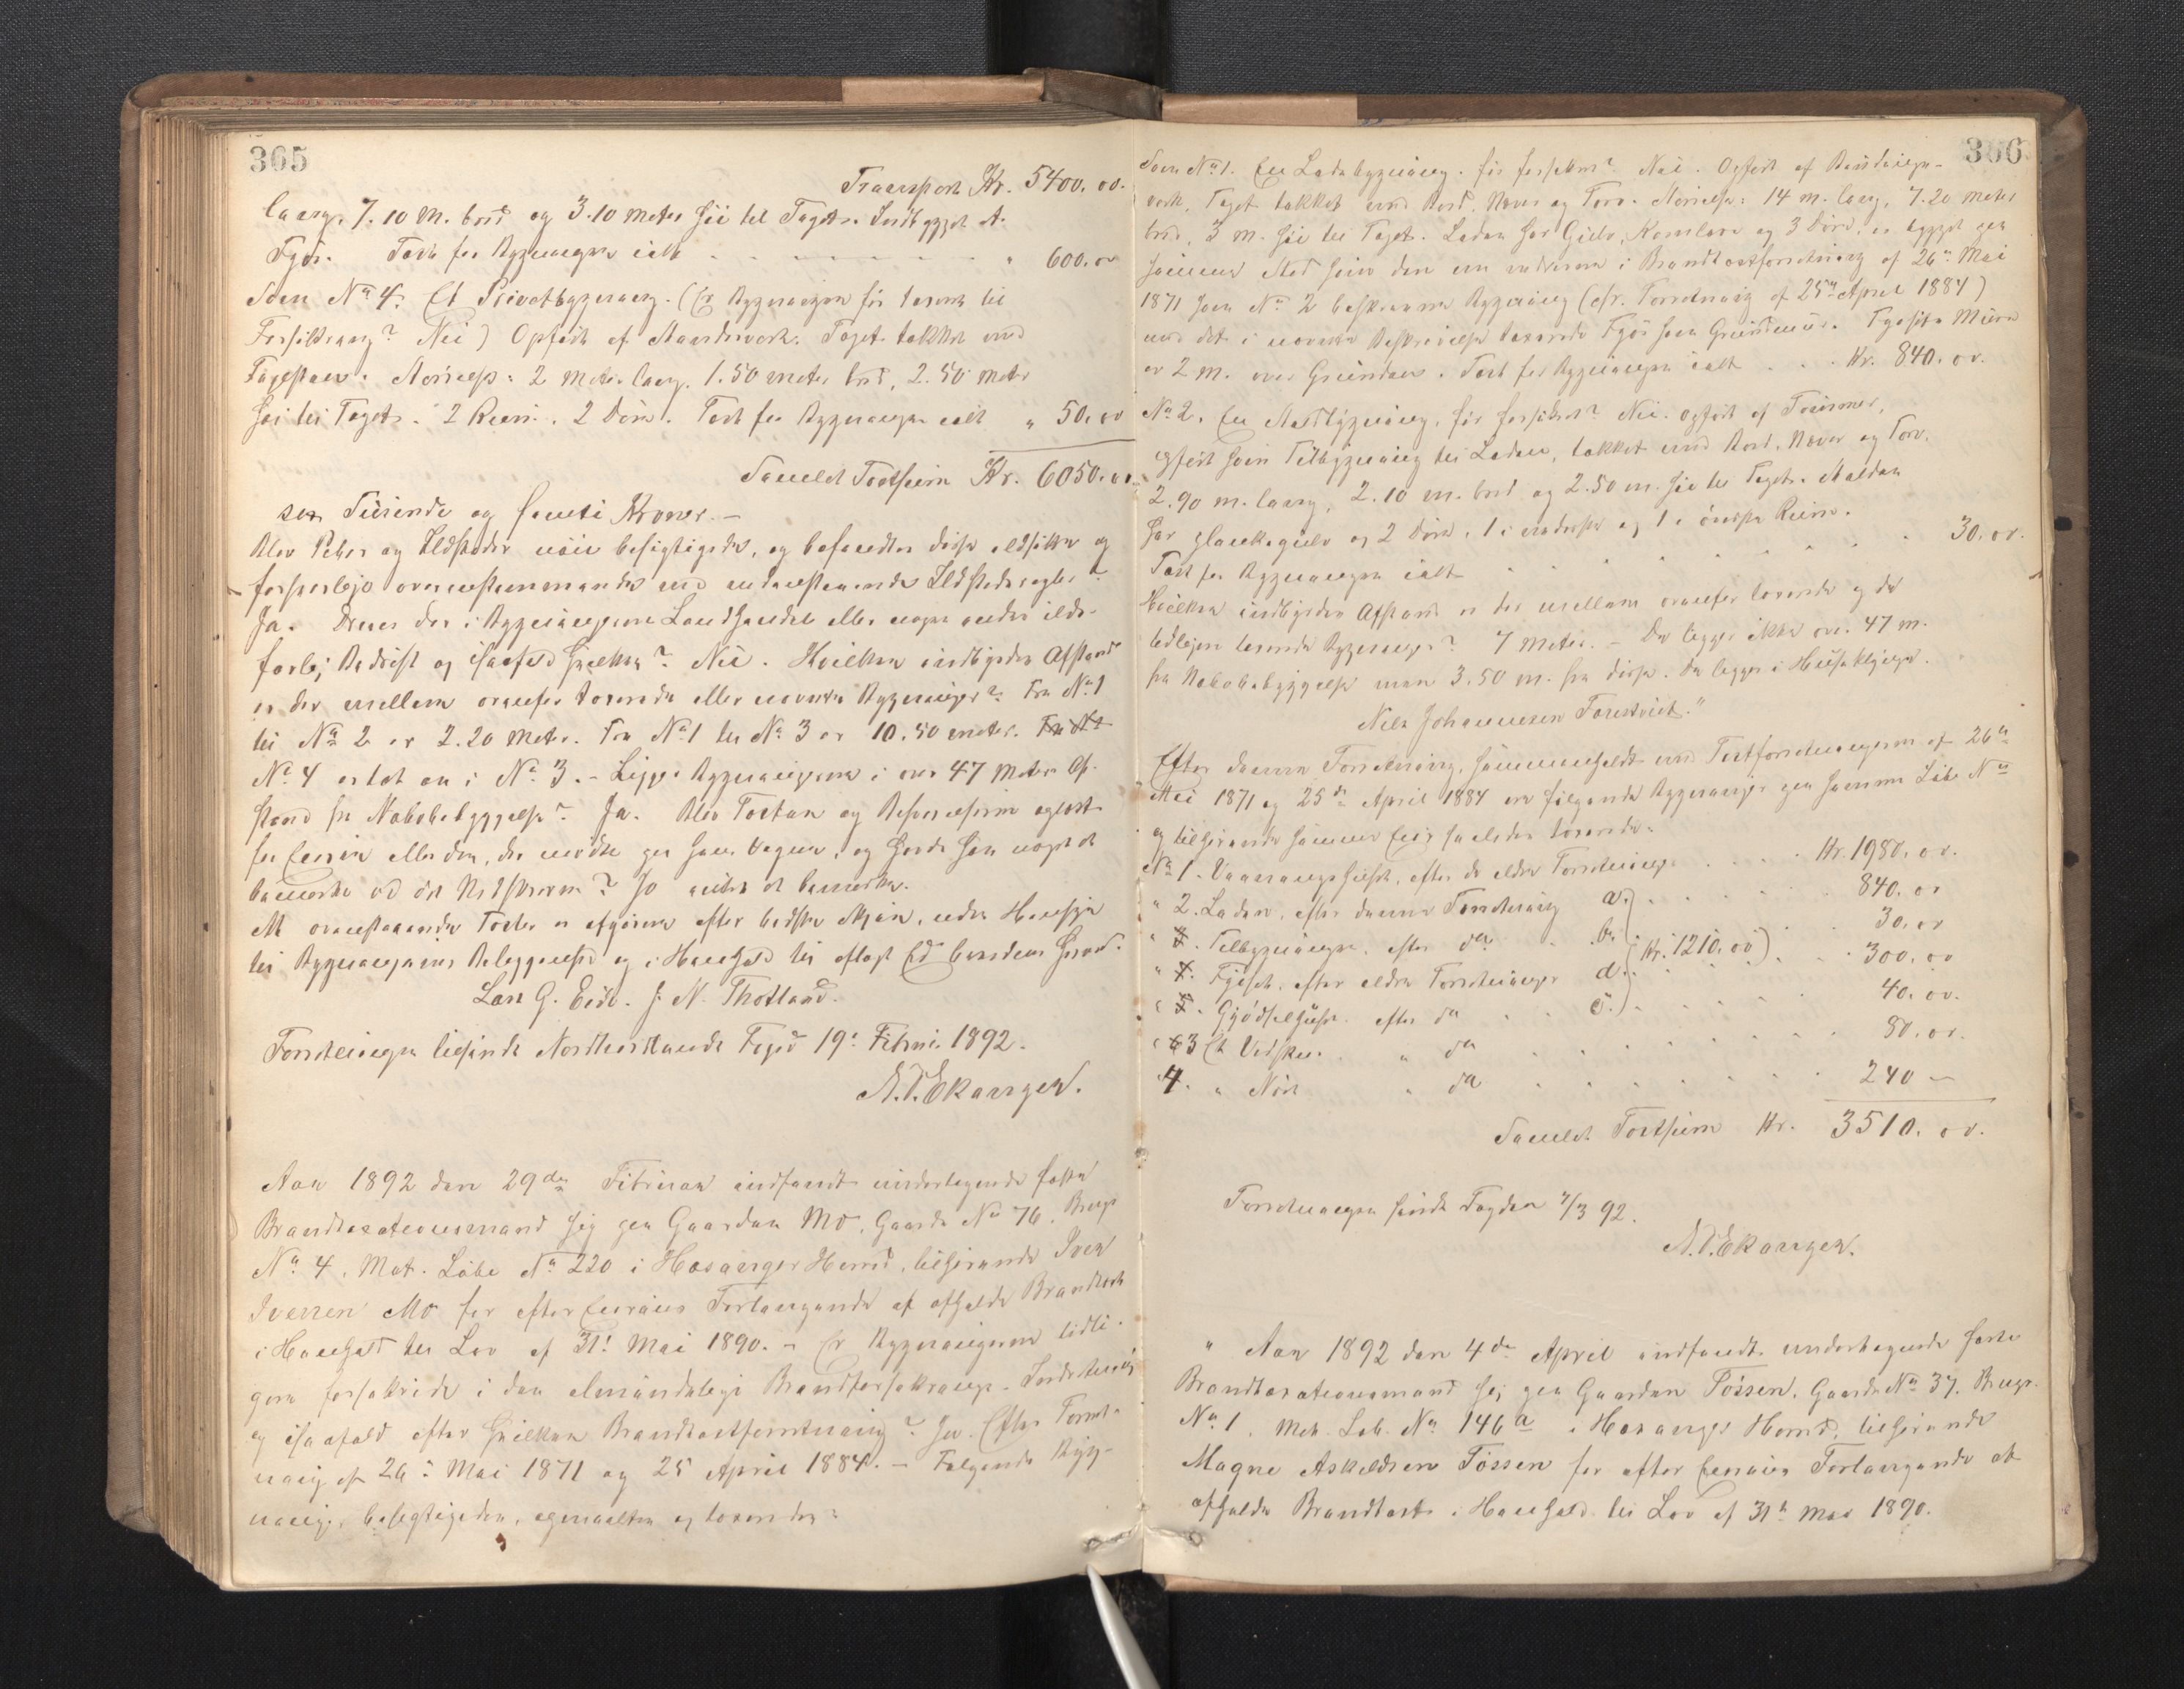 365
Transport Kr. 5400. 00.
lang, 7.10 M. bred og 3.10 Meter høi til Taget. Indbygget et
Fjøs. Taxt for Bygningen ialt " 600. 00
Som No 4. Et Privetbygning. (Er Bygningen før taxeret til
Forsikring? Nei) Opført af Standværk. Taget tækket med
Tagsten. Størrelse: 2 Meter lang, 1.50 meter bred, 2.50 Meter
høi til Taget. 2 Rum. 2 Døre. Taxt for Bygningen ialt " 50. 00
Samlet Taxtsum Kr. 6050. 00
sex Tusinde og femti Kroner.—
Blev Piber og Ildsteder nøie besigtigede, og befandtes disse ildsikre og
forøvrigt overensstemmende med medenstaaende Ildstedsregler?
Ja. Drives der i Bygningerne Landhandel eller nogen anden ilds-
farlig Bedrift og isaafald hvilken? Nei. Hvilken indbyrdes Afstand
er der mellem ovenfor taxerede eller nævnte Bygninger? Fra No 1
til No 2 er 2.20 Meter. Fra No 1 til No 3 er 10.50 meter. Fra No
No 4 er tæt ved No 3. – Ligger Bygningerne i over 47 Meters Af-
stand fra Nabobebyggelse? Ja. Blev Taxten og Beskrivelsen oplæst
for Eieren eller den, der mødte paa hans Vegne, og havde han noget at
bemærke ved det Beskrevne? Jo intet at bemærke.
At ovenstaaende Taxter er afgivne efter bedste Skjøn, uden Hensyn
til Bygningernes Beliggenhed og i Henhold til aflagt Ed bevidnes herved.
Lars G. Eide. J. N. Thotland.
Forretningen tilsendt Nordhordlands Foged 19. Febru. 1892.
N. P. Ekanger.
Aar 1892 den 29de Februar indfandt undertegnede faste
Brandtaxationsmænd sig paa Gaarden Mo, Gaards No 76, Brugs
No 4, Mat. Løbe No 220 i Hosanger Herred, tilhørende Iver
Iversen Mo for efter Eierens Forlangende at afholde Brandtaxt
i Henhold til Lov af 31. Mai 1890. – Er Bygningerne tidli-
gere forsikrede i den almindelige Brandforsikrings-Indretning
og isaafald efter hvilken Brandtaxtforretning? Jo. Efter Forret-
ning af 26. Mai 1871 og 25 April 1884. – Følgende Byg-
ninger besigtigedes, opmaaltes og taxeredes:
366
Som No 1. En Ladebygning. før forsikret? Nei. Opført af Bindings-
værk, Taget tækket med Bord, Næver og Torv. Størrelse: 14 m. lang, 7.20 meter
bred, 3 m. høi til Taget. Laden har Gulv, Kornlave og 3 Døre, er bygget paa
samme Sted som den nu nedrevne i Brandtaxtforretning af 26. Mai
1871 som No 2 beskrevne Bygning (cfr. Forretning af 25de April 1884)
med det i nævnte Beskrivelse taxerede Fjøs som Grundmur. Fjøsets Mure
er 2 m. over Grunden. Taxt for Bygningen ialt . . . Kr. 840. 00.
No 2. En Staldbygning, før forsikret? Nei. opført af Tømmer,
opført som Tilbygning til Laden, tækket med Bord, Næver og Torv.
2.90 m. lang, 2.10 m. bred og 2.50 m. høi til Taget. Stalden
har Plankegulv og 2 Døre, 1 i nederste og 1 i øverste Rum.
Taxt for Bygningen ialt 30. 00.
Hvilken indbyrdes Afstand er der mellem ovenfor taxerede og de
tidligere taxerede Bygninger? 7 Meter. – De ligger ikke over 47 m.
fra Nabobebyggelse men 3.50 m. fra disse. De ligger i Huseklynge.
Nils Johannesen Farestveit."
Efter denne Forretning, sammenholdt med Taxtforretningerne af 26de
Mai 1871 og 25de April 1884 ere følgende Bygninger paa samme Løbe No
og tilhørende samme Eier saaledes taxerede:
No 1. Vaaningshuset, efter de eldre Forretninger . . . . . Kr. 1980. 00.
" 2. Laden, efter denne Forretning a.) 840. 00
" Tilbygningen, efter do b. (Kr. 1210. 00) 30. 00
" Fjøset, efter eldre Forretninger d. 300. 00
" Gjødselhuset. efter do c.) 40. 00.
" 3 Et Vedskur. " do 80. 00.
" 4. " Nøst " do 240 —
Samlet Taxtsum Kr. 3510. 00.
Forretningen sendt Fogden 7/3 92.
N. P. Ekanger.
" Aar 1892 den 4de April indfandt undertegnede faste
Brandtaxationsmænd sig paa Gaarden Fossen, Gaards No 37, Brugs-
No 1, Mat. Løb. No 146a i Hosanger Herred, tilhørende
Magne Askeldsen Fossen for efter Eierens Forlangende at
afholde Brandtaxt i Henhold til Lov af 31te Mai 1890.